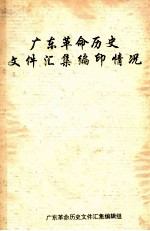 广东革命历史
文件汇集编印情况
广东革命历史文件汇集编辑组